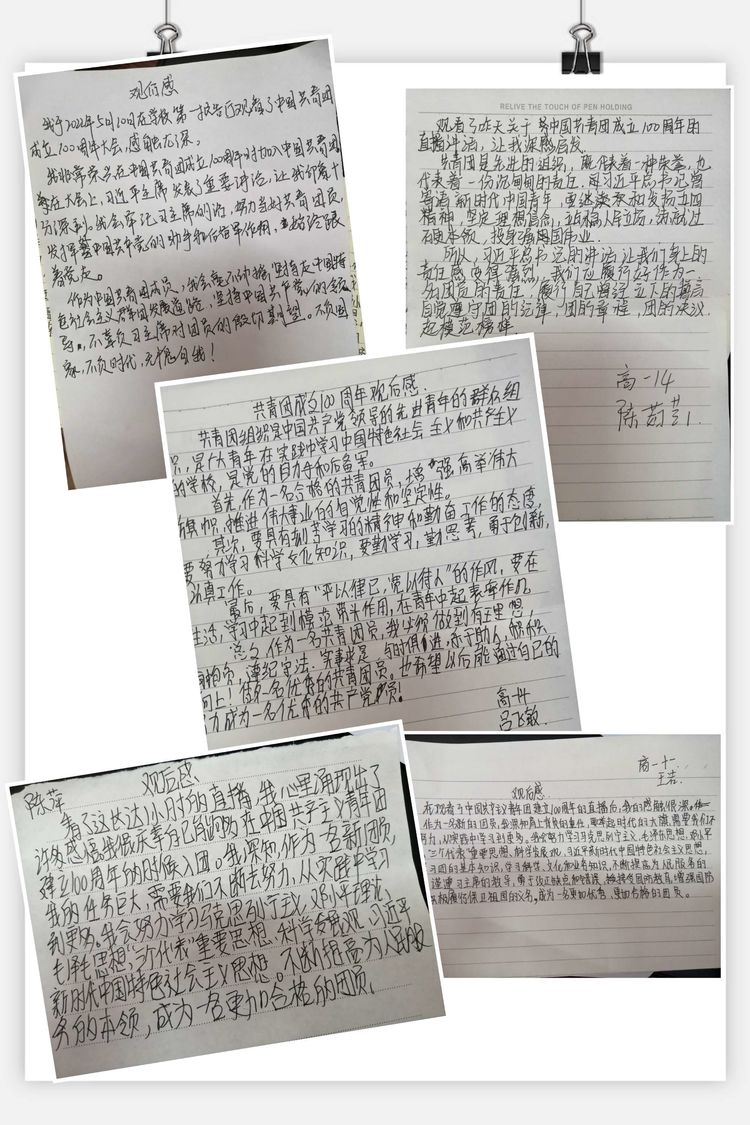 观后感
我于2022年5月10日在学校第一报告厅观看了中国共青团
成立100周年大会,感触尤深。
我非常荣幸在中国共青团成立100周年时加入中国共青团
在大会上,习近平主席发表了重要讲话,让我印象十
分深刻。我会牢记习主席的话,努力当好共青团员,
发挥中国共产党的助手和后备军作用,始终跟
着党走。
作为中国共青团员,我会毫不动摇,坚持走中国特
色社会主义群团发展道路,坚持中国共产党的全面
导,不辜负习主席对团员的殷切期望。不负国
家,不负时代,无愧自我!
RELIVE THE TOUCH OF PEN HOLDING
观看了昨天关于中国共青团成立100周年的
直播讲话,让我深感启发。
共青团是先进的组织,既代表着一种荣誉,也
代表着一份沉甸甸的责任。习近平总书记曾
寄语新时代中国青年,要继承和发扬五四
精神,坚定理想信念,站稳人民立场,练就过
硬本领,投身强国伟业。
所以,习近平总书记的讲话让我们身上的
责任感变得强烈,我们应履行好作为一
名团员的责任,履行自己曾经立下的誓言
自觉遵守团的纪律,团的章程,团的决议
起模范榜样
高一14
陈
共青团成立100周年观后感.
共青团组织是中国共产党领导的先进青年的群众组
织,是广大青年在实践中学习中国特色社会主义和共产主义
的学校,是党的助手和后备军。
首先,作为一名合格的共青团员,增强高举伟大
旗帜,推进伟大事业的自觉性和坚定性。
其次,要具有刻苦学习的精神和勤奋工作的态度,
要努力学习科学文化知识,要勤学习,勤思考,勇于创新,
认真工作。
最后,要具有“严以律己,宽以待人”的作风,要在
生活,学习中起到模范带头作用,在青年中起表率作用。
总之,作为一名共青团员,我必须做到有理想,
遵纪守法,实事求是,与时俱进,乐于助人,积极
向上!做好一名优秀的共青团员。也希望以后能通过自己的
力成为一名优秀的共产党员!
高一14
吕飞敏.
陈萍
观后感
看了这长达1小时的直播,我心里涌现出了
许多感悟,我很庆幸自己能够在中国共产主义青年团
建立100周年的时候入团。我深知,作为一名新团员,
我的任务巨大,需要我们不断去努力,从实践中学习
到更多。我会努力学习马克思列宁主义,邓小平理论
毛泽东思想“三个代表”重要思想、科学发展观、习近平
新时代中国特色社会主义思想。不断提高为人民服
务的本领,成为一名更加合格的团员.
高一十一
王洁
观后感.
在观看了中国共产主义青年团建立100周年的直播后,我的感触很深。
作为一名新的团员,我深知肩上肩负的重任,艰举起时代的大旗,需要我们不
努力,从实践中学习到更多。我会努力学习马克思列宁主义、毛泽东思想、邓小平
“三个代表”重要思想、科学发展观、习近平新时代中国特色社会主义思想,
习团的基本知识,学习科学、文化和业务知识,不断提高为人民服务的
遵习主席的教导,勇于改正缺点和错误,接受国防教育,增强国防
积极履行保卫祖国的义务,成为一名更加优秀、更加合格的团员。